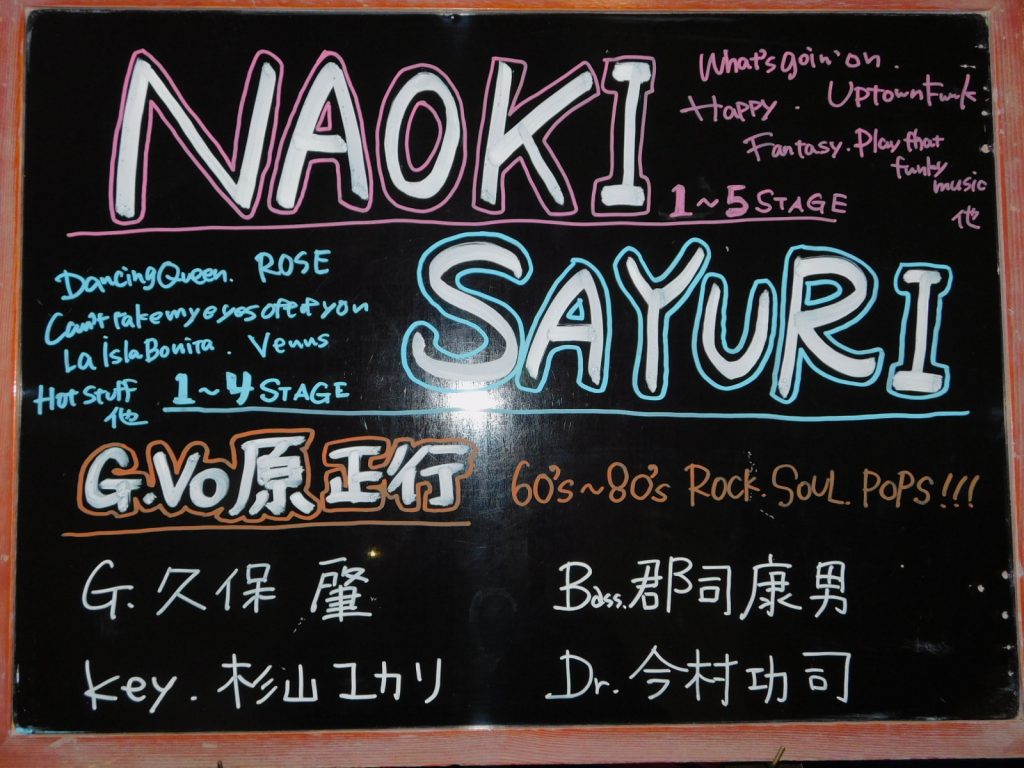 NAOKI
What's goin' on.
Happy. Uptown Funk
Fantasy. Play that
funky
music
他
1～5 STAGE
SAYURI
Dancing Queen. ROSE
Can't take my eyes off of you
La Isla Bonita. Venus
Hot Stuff
他
1～4 STAGE
G.Vo 原 正行
60's～80's ROCK. SOUL. POPS!!!
G. 久保 肇
Bass. 郡司康男
Key. 杉山ユカリ
Dr. 今村功司